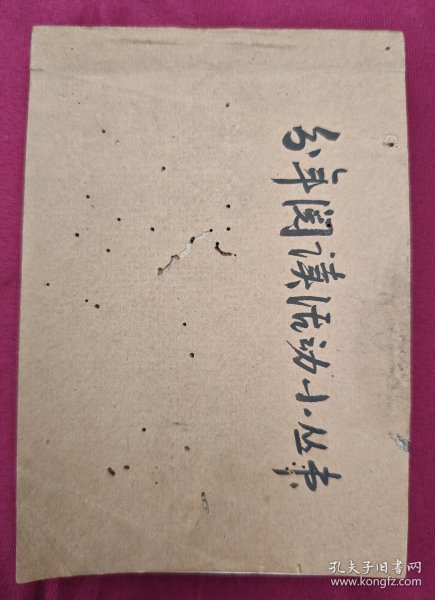 少年阅读活动小丛书
孔夫子旧书网
www.kongfz.com